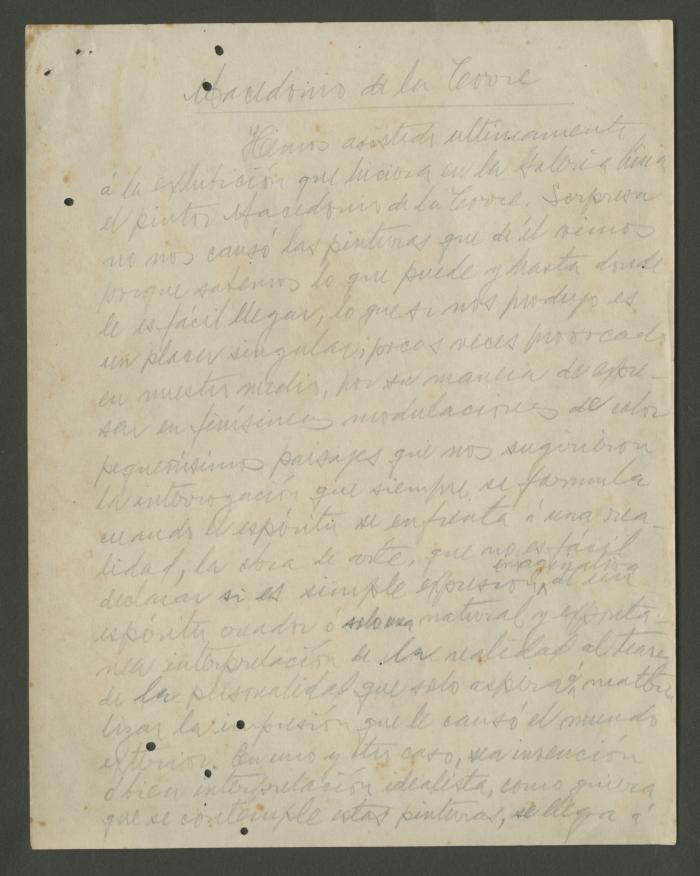 Macedonio de la Torre
Hemos asistido ultimamente
á la exhibición que hiciera en la Galeria Lima
el pintor Macedonio de la Torre. Sorpresa
no nos causó las pinturas que de él vimos
porque sabemos lo que puede y hasta donde
le es fácil llegar, lo que si nos produjo es
un placer singular, pocas veces provocado
en nuestro medio, por su manera de expre-
sar en finísimas modulaciones de color
pequeñísimos paisajes que nos sugirieron
la interrogación que siempre se formula
cuando el espíritu se enfrenta á una rea-
lidad, la obra de arte, que no es fácil
declarar si es simple expresión imaginativa de un
espíritu creador ó solo una natural y espontá-
nea interpretación de la realidad al
de la personalidad que solo aspira á
lizar la impresión que le causó el mundo
exterior. En uno y otro caso, sea invención
ó bien interpretación idealista, como quiera
que se contemple estas pinturas, se llega á